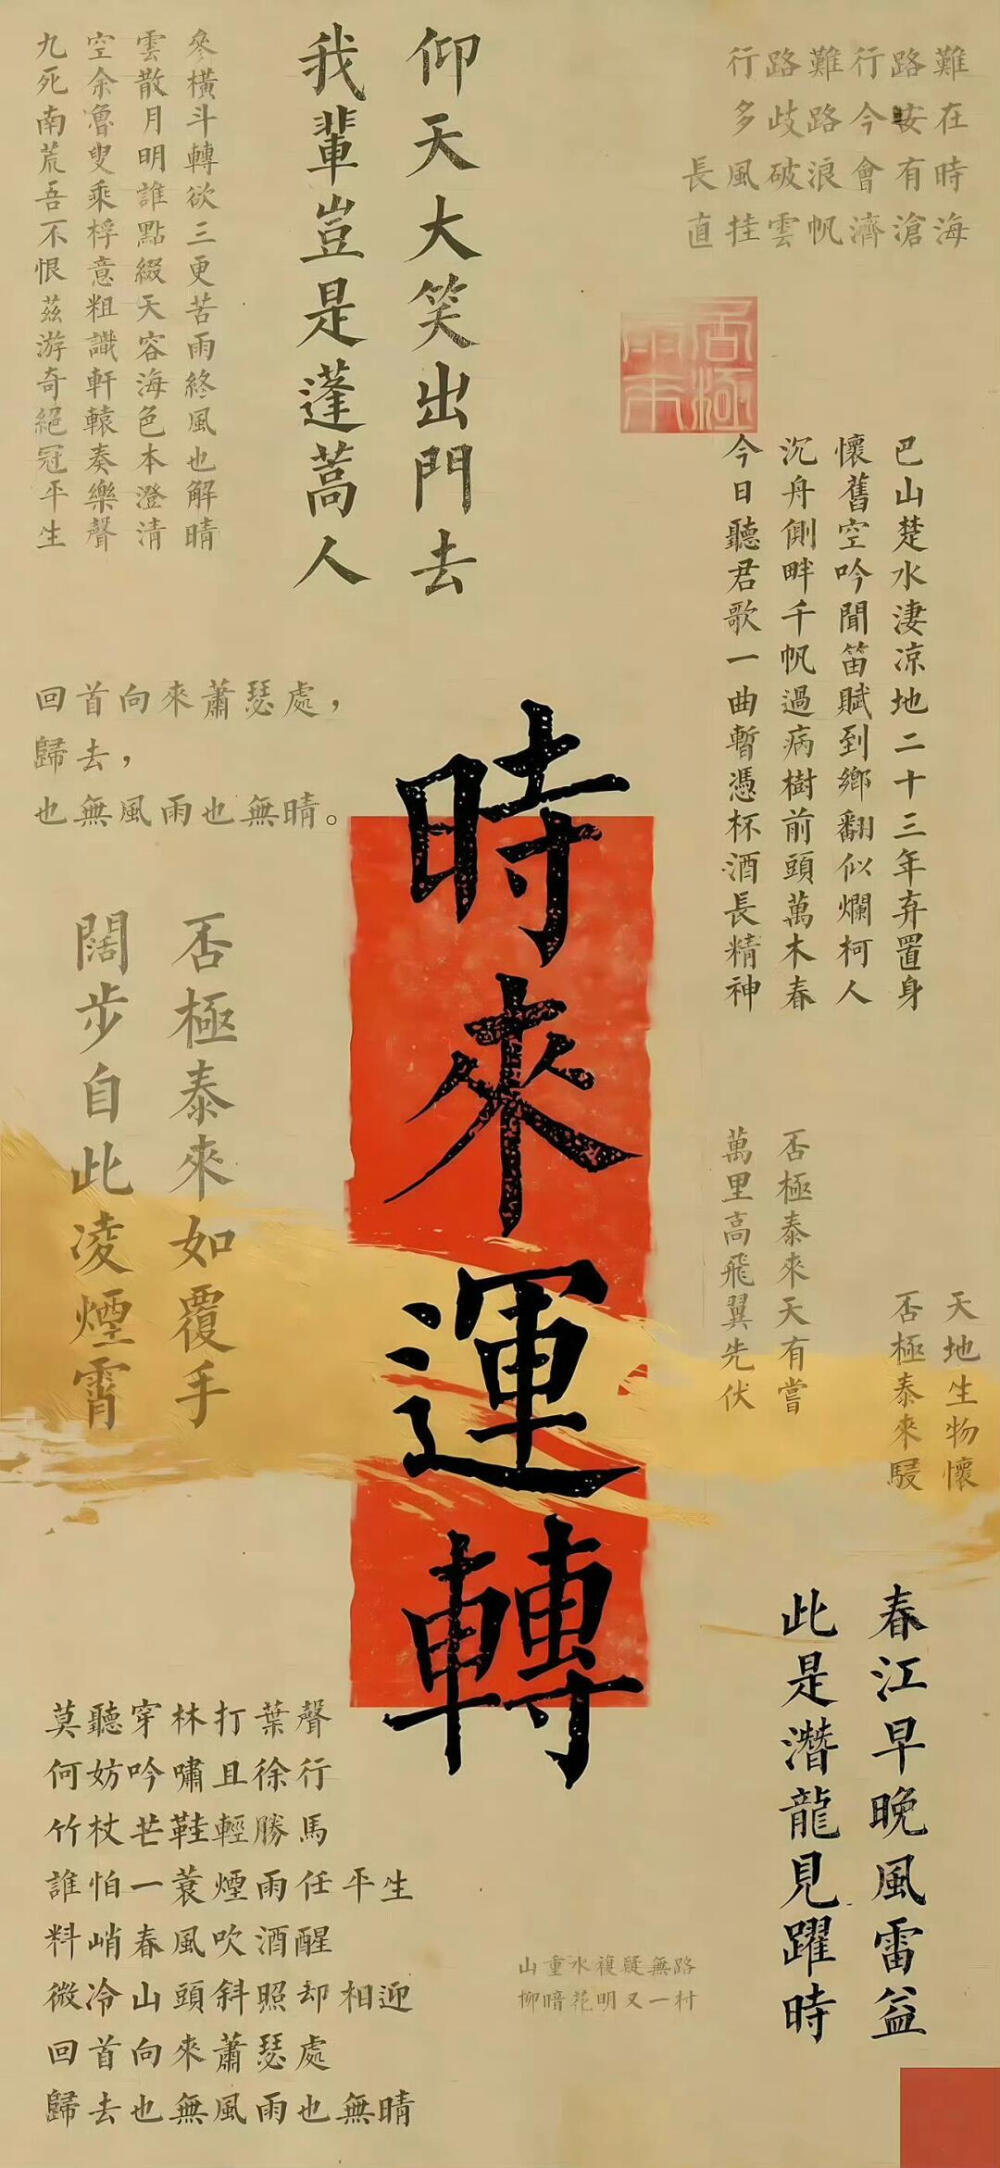 難路行難路行
在安今路歧多
時有會浪破風長
海滄濟帆雲挂直
仰天大笑出門去
我輩豈是蓬蒿人
參橫斗轉欲三更苦雨終風也解晴
雲散月明誰點綴天容海色本澄清
空余魯叟乘桴意粗識軒轅奏樂聲
九死南荒吾不恨茲游奇絕冠平生
否極
泰來
巴山楚水淒凉地二十三年弃置身
懷舊空吟聞笛賦到鄉翻似爛柯人
沉舟側畔千帆過病樹前頭萬木春
今日聽君歌一曲暫憑杯酒長精神
回首向來蕭瑟處，
歸去，
也無風雨也無晴。
時來運轉
否極泰來如覆手
闊步自此凌煙霄
否極泰來天有嘗
萬里高飛翼先伏
天地生物懷
否極泰來駸
春江早晚風雷益
此是潛龍見躍時
莫聽穿林打葉聲
何妨吟嘯且徐行
竹杖芒鞋輕勝馬
誰怕一蓑煙雨任平生
料峭春風吹酒醒
微冷山頭斜照却相迎
回首向來蕭瑟處
歸去也無風雨也無晴
山重水複疑無路
柳暗花明又一村